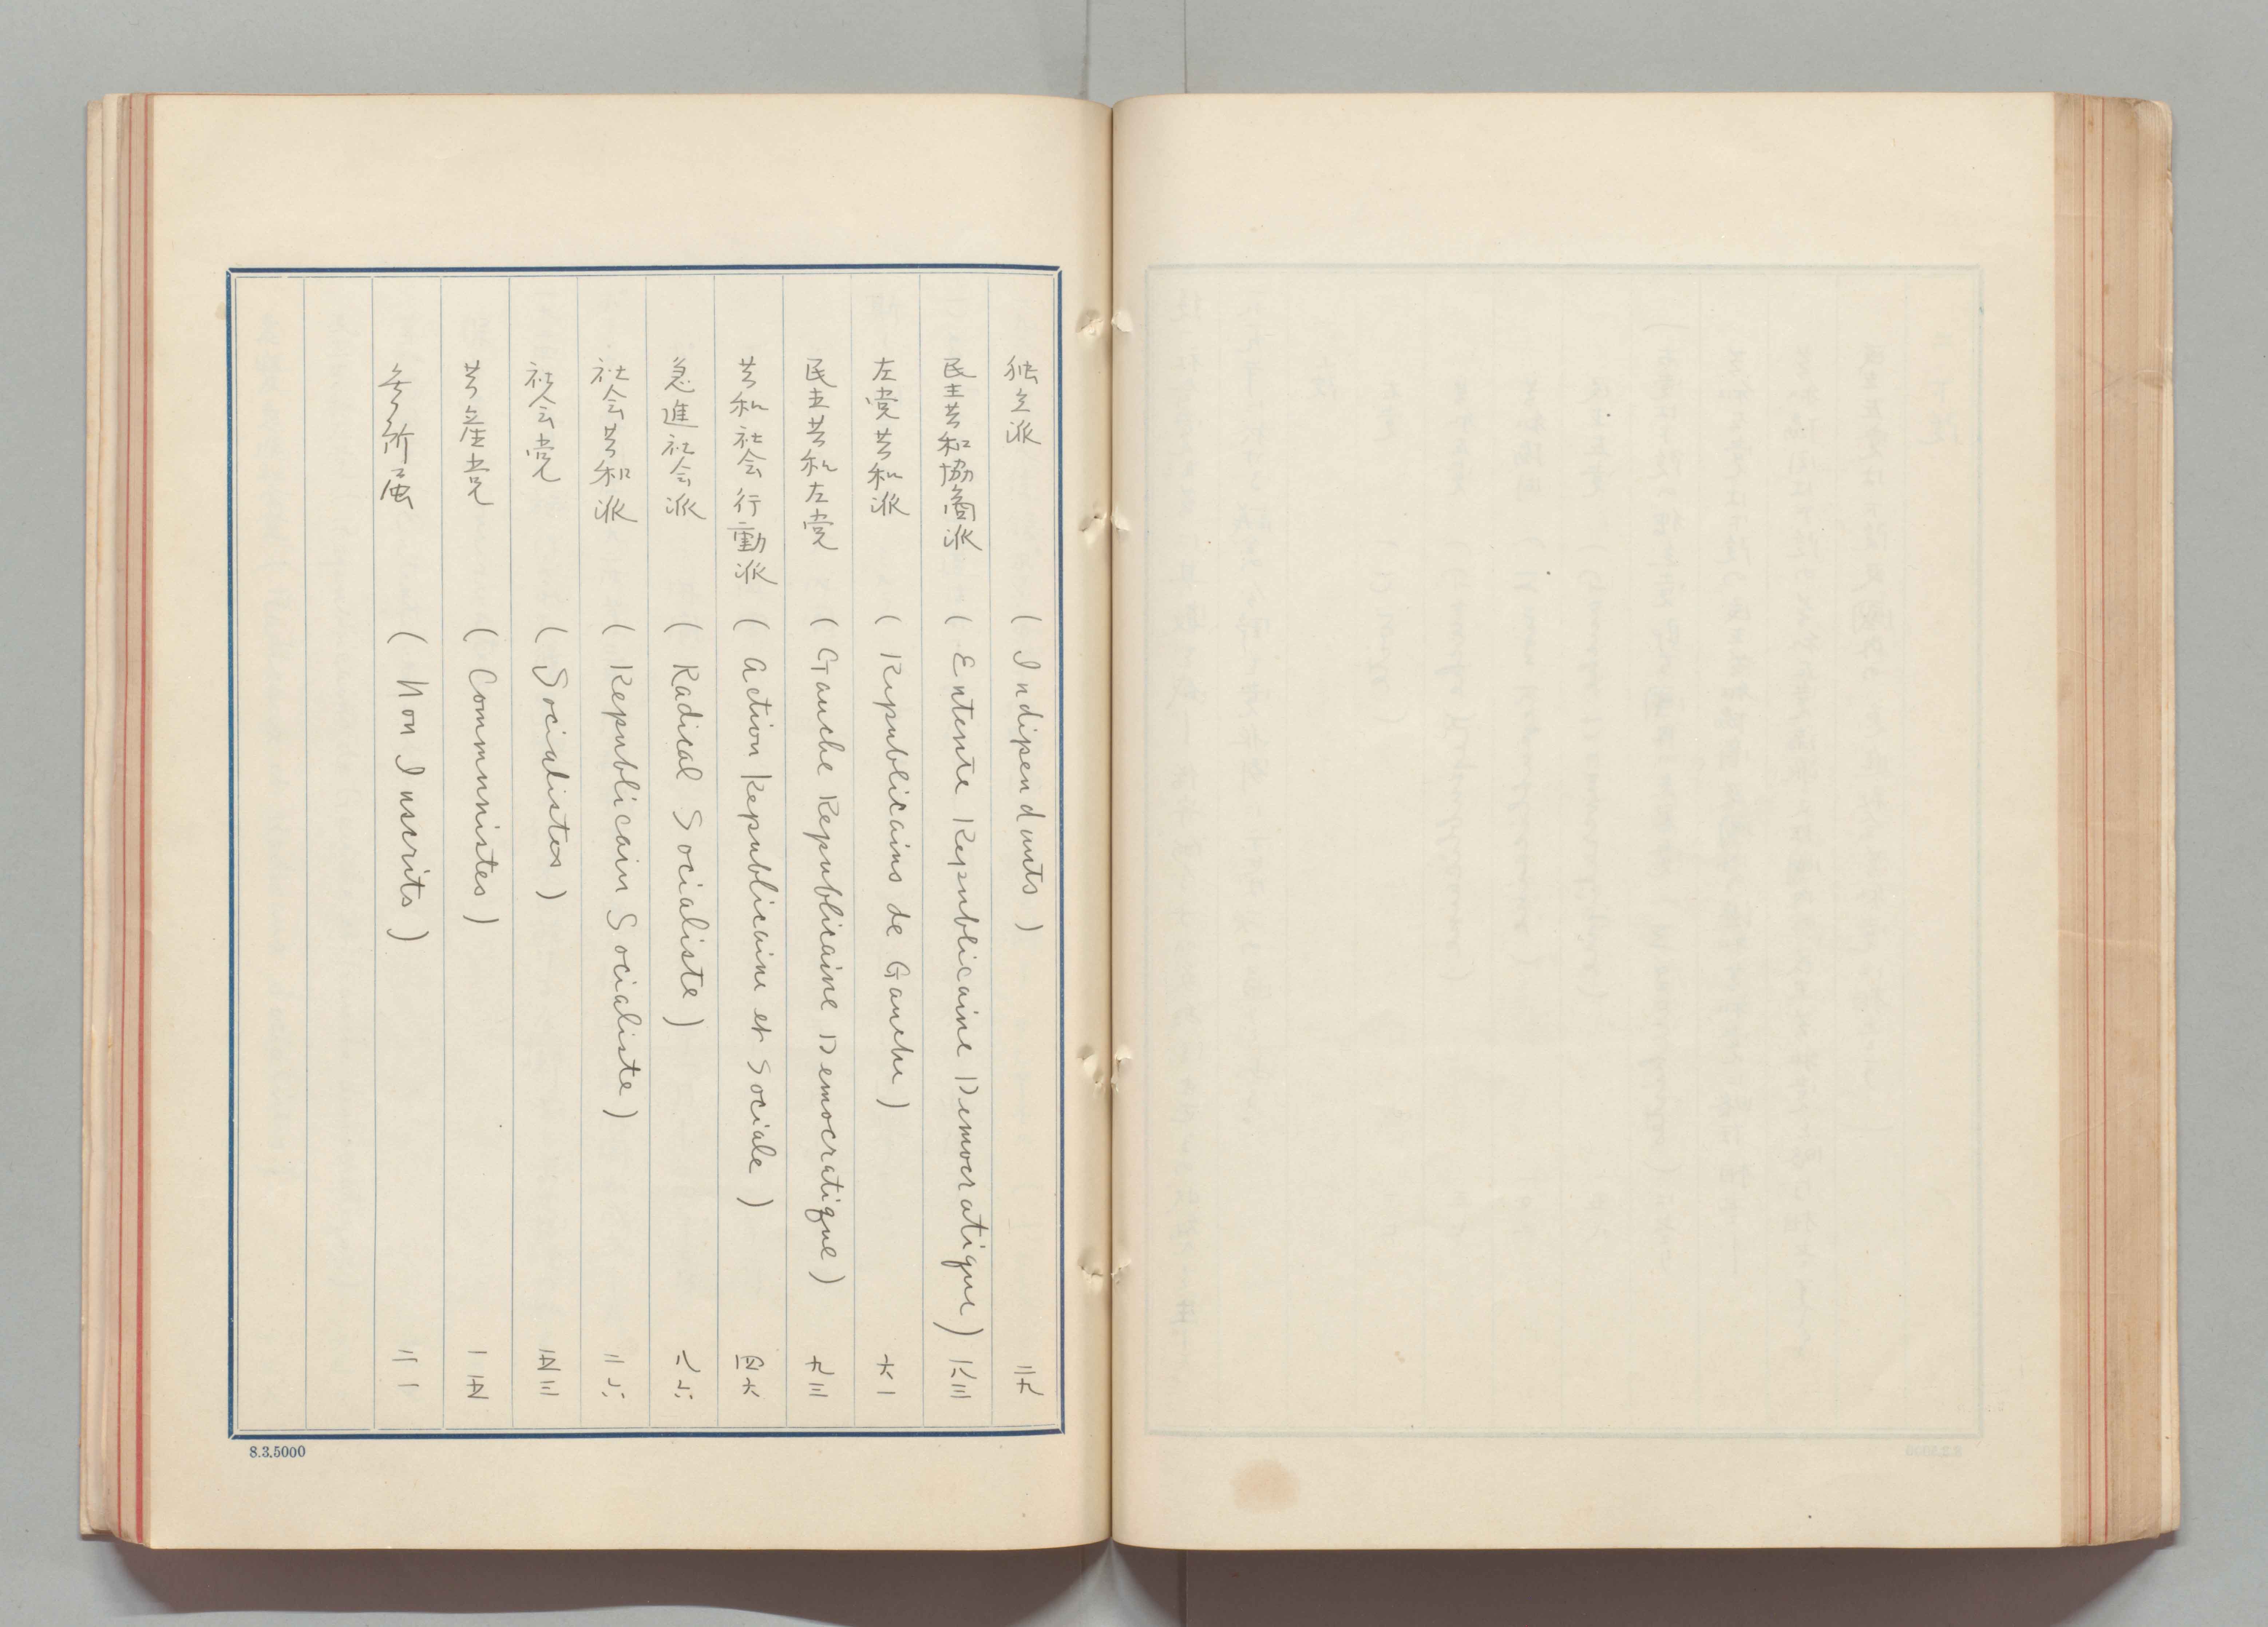 独立派 ( Independants ) 二九
民主共和協商派 ( Entente Republicaine Democratique ) 一八三
左党共和派 ( Republicains de Gauche ) 六一
民主共和左党 ( Gauche Republicaine Democratique ) 九三
共和社会行動派 ( Action Republicaine et Sociale ) 四六
急進社会派 ( Radical Socialiste ) 八六
社会共和派 ( Republicain Socialiste ) 二六
社会党 ( Socialistes ) 五三
共産党 ( Communistes ) 一五
無所属 ( Non Inscrits ) 二一
8.3.5000